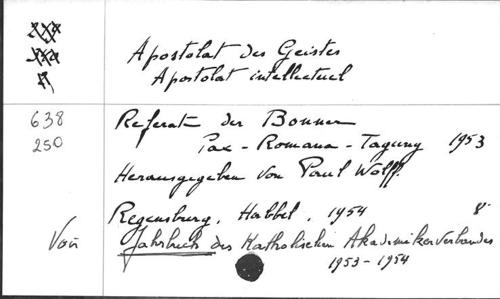 Apostolat des Geistes
Apostolat intellectuel
638
250
Referate der Bonner
Pax-Romana-Tagung 1953
Herausgegeben von Paul Wolff.
Regensburg, Habbel, 1954 8°
Voir Jahrbuch des Katholischen Akademikerverbandes
1953-1954